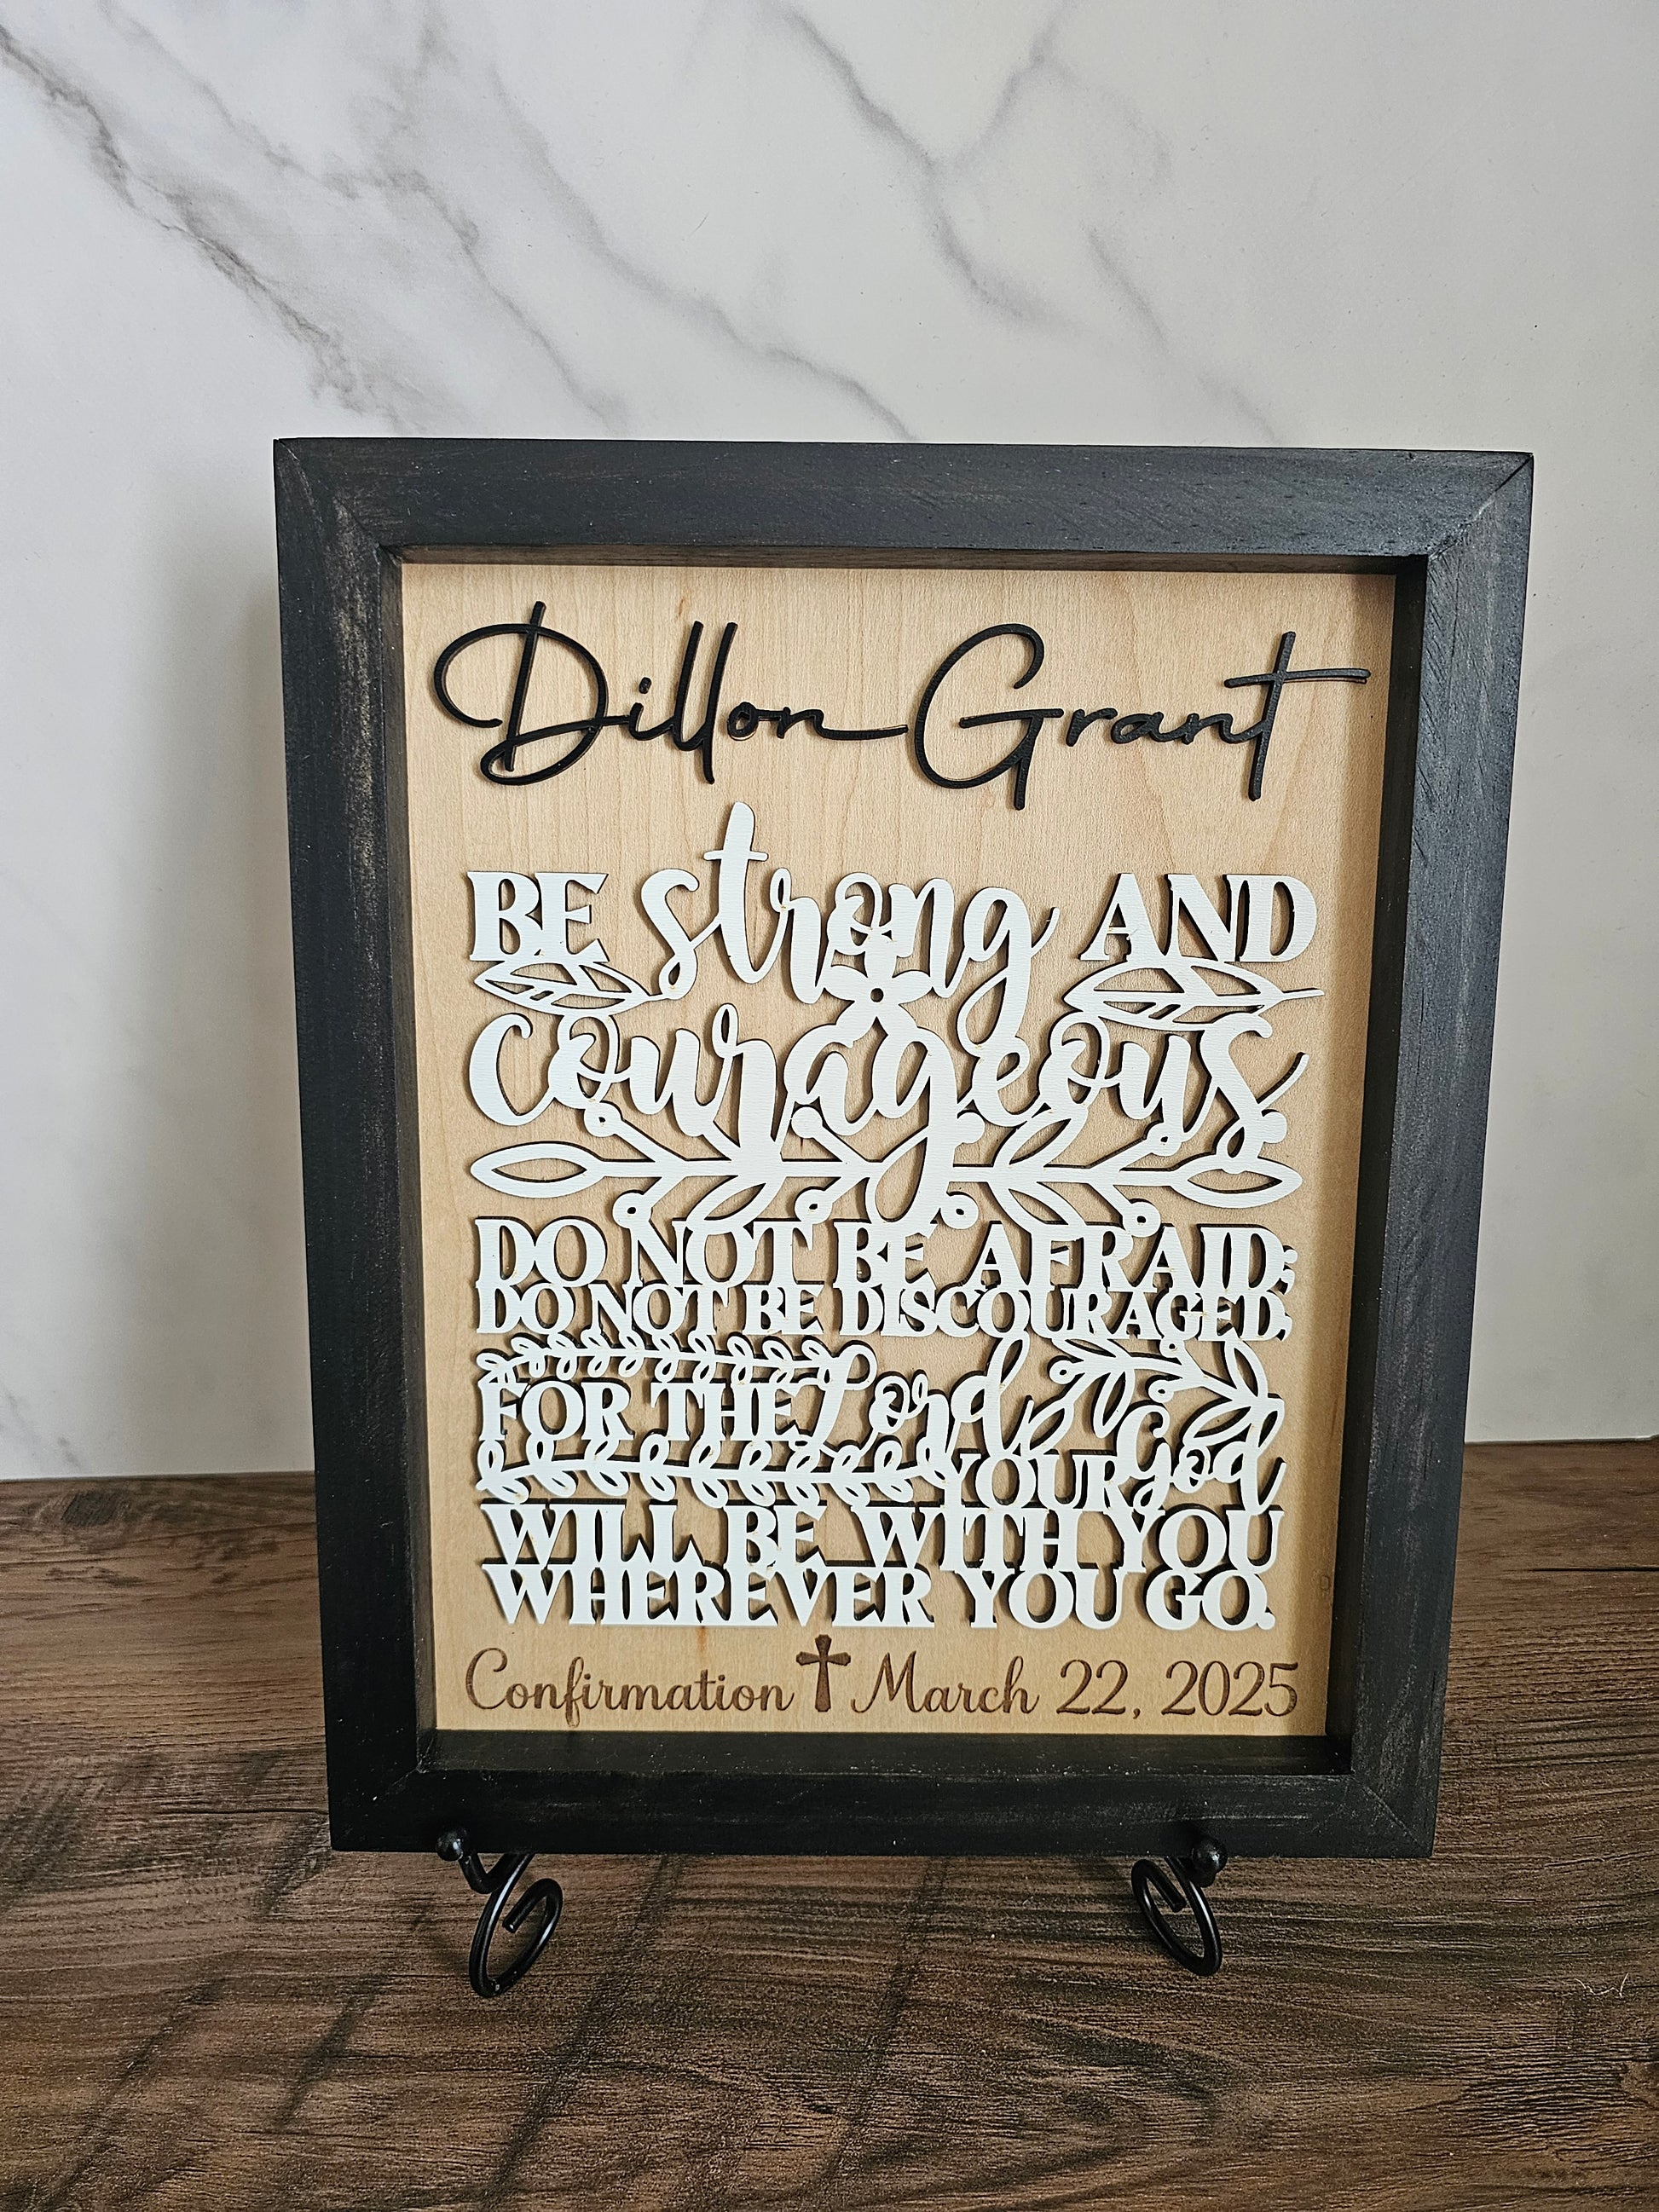 Dillon Grant
BE strong AND
courageous
DO NOT BE AFRAID;
DO NOT BE DISCOURAGED,
FOR THE Lord
YOUR God
WILL BE WITH YOU
WHEREVER YOU GO.
Confirmation March 22, 2025